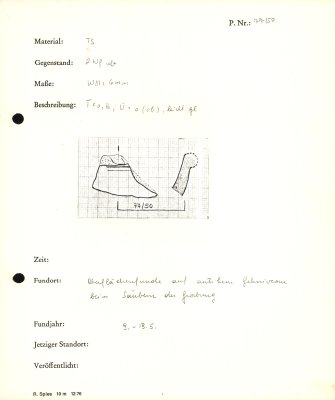 P. Nr.: 77/50
Material: TS
Gegenstand: 2 Wp
Maße:
Beschreibung:
77/50
Zeit:
Fundort: Oberflächenfunde auf antikem Gehniveau
beim Säubern der Grabung
Fundjahr: 9. - 13. 5.
Jetziger Standort:
Veröffentlicht:
R. Spies 10 m 12 76